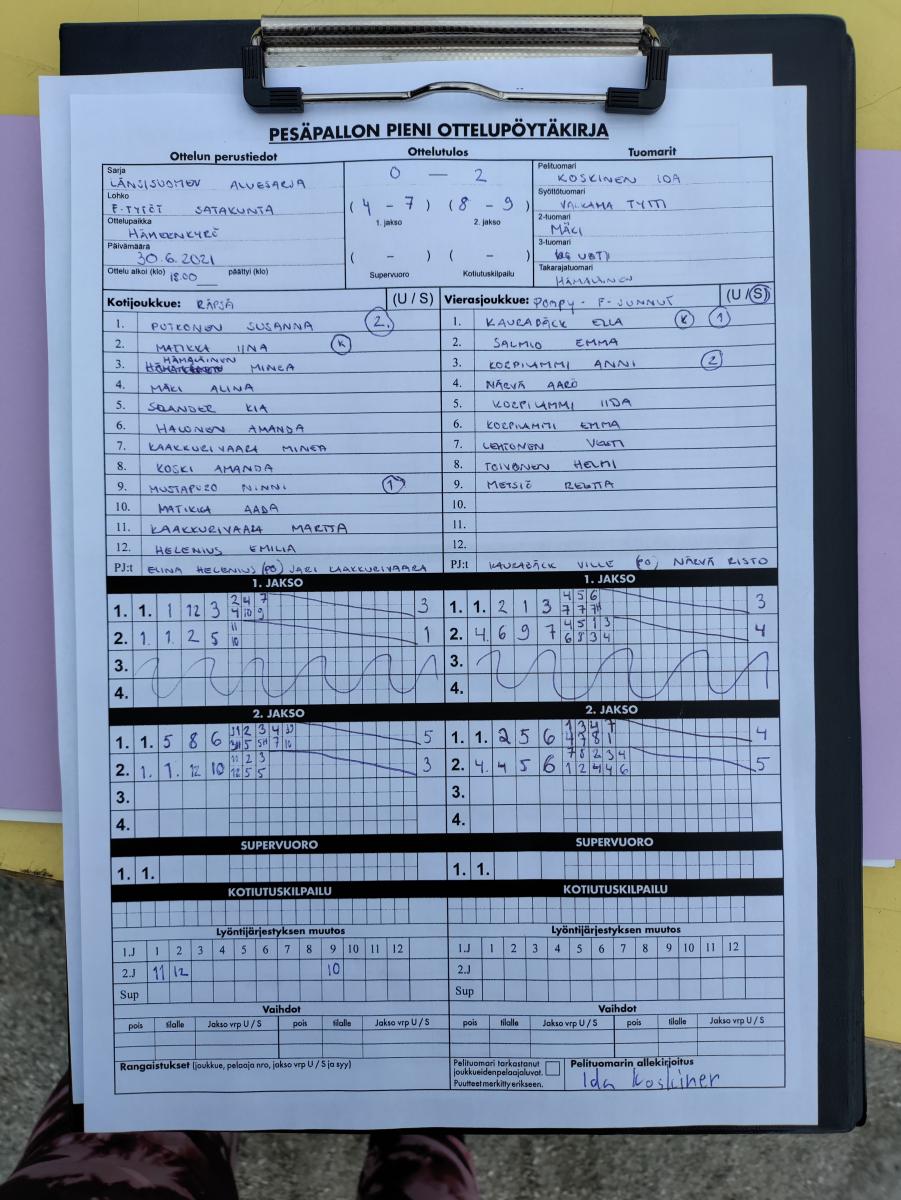 PESÄPALLON PIENI OTTELUPÖYTÄKIRJA
Ottelun perustiedot
Sarja
LÄNSISUOMEN ALUESARJA
Lohko
F-TYTÖT SATAKUNTA
Ottelupaikka
HÄMEENKYRÖ
Päivämäärä
30.6.2021
Ottelu alkoi (klo) 18.00 päättyi (klo)
Ottelutulos
0 — 2
( 4 - 7 ) ( 8 - 9 )
1. jakso 2. jakso
( - ) ( - )
Supervuoro Kotiutuskilpailu
Tuomarit
Pelituomari
KOSKINEN IDA
Syöttötuomari
VALKAMA TYTTI
2-tuomari
MÄKI
3-tuomari
Takarajatuomari
HÄMÄLÄINEN
Kotijoukkue: RÄPSÄ (U / S)
1. PUTKONEN SUSANNA 2.
2. MATIKKA IINA K
3. HÄMÄLÄINEN MINEA
4. MÄKI ALINA
5. KIA
6. HALONEN AMANDA
7. KAAKKURIVAARA MINEA
8. KOSKI AMANDA
9. MUSTAPURO NINNI 1
10. MATIKKA AADA
11. KAAKKURIVAARA MARTTA
12. HELENIUS EMILIA
PJ:t ELINA HELENIUS (PO) JARI KAAKKURIVAARA
Vierasjoukkue: POMPY - F-JUNNUT (U / S)
1. KAURABÄCK ELLA K 1
2. SALMIO EMMA
3. KORPILAMMI ANNI 2
4. NÄRVÄ AARO
5. KORPILAMMI IIDA
6. KORPILAMMI EMMA
7. LEHTONEN VENTI
8. TOIVONEN HELMI
9. METSIÖ REETTA
10.
11.
12.
PJ:t KAURABÄCK VILLE (PO), NÄRVÄ RISTO
1. JAKSO
1. 1. 1 12 3 2 4 7 3
4 10 9
2. 1. 1. 2 5 11 1
10
3.
4.
1. JAKSO
1. 1. 2 1 3 4 5 6 3
7 7 7H
2. 4. 6 9 7 4 5 1 3 4
6 8 3 4
3.
4.
2. JAKSO
1. 1. 5 8 6 11 2 3 4 10 5
3H 5 5H 7 10
2. 1. 1. 12 10 11 2 3 3
12 5 5
3.
4.
2. JAKSO
1. 1. 2 5 6 1 3 4 7 4
4 7 8 1
2. 4. 4 5 6 7 8 2 3 4 5
1 2 4 4 6
3.
4.
SUPERVUORO
1. 1.
SUPERVUORO
1. 1.
KOTIUTUSKILPAILU
KOTIUTUSKILPAILU
Lyöntijärjestyksen muutos
1.J 1 2 3 4 5 6 7 8 9 10 11 12
2.J 11 12 10
Sup
Lyöntijärjestyksen muutos
1.J 1 2 3 4 5 6 7 8 9 10 11 12
2.J
Sup
Vaihdot
pois tilalle Jakso vrp U / S pois tilalle Jakso vrp U / S
Vaihdot
pois tilalle Jakso vrp U / S pois tilalle Jakso vrp U / S
Rangaistukset (joukkue, pelaaja nro, jakso vrp U / S ja syy)
Pelituomari tarkastanut
joukkueidenpelaajaluvat.
Puutteet merkitty erikseen.
Pelituomarin allekirjoitus
Ida Koskinen